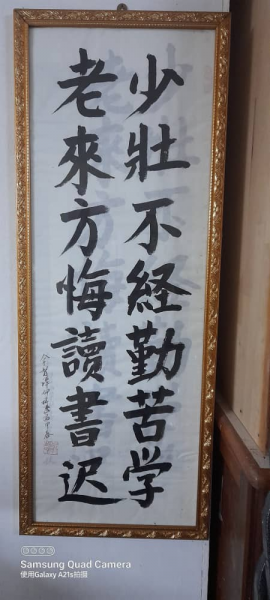 少壯不経勤苦学
老來方悔讀書迟
Samsung Quad Camera
使用Galaxy A21s拍攝